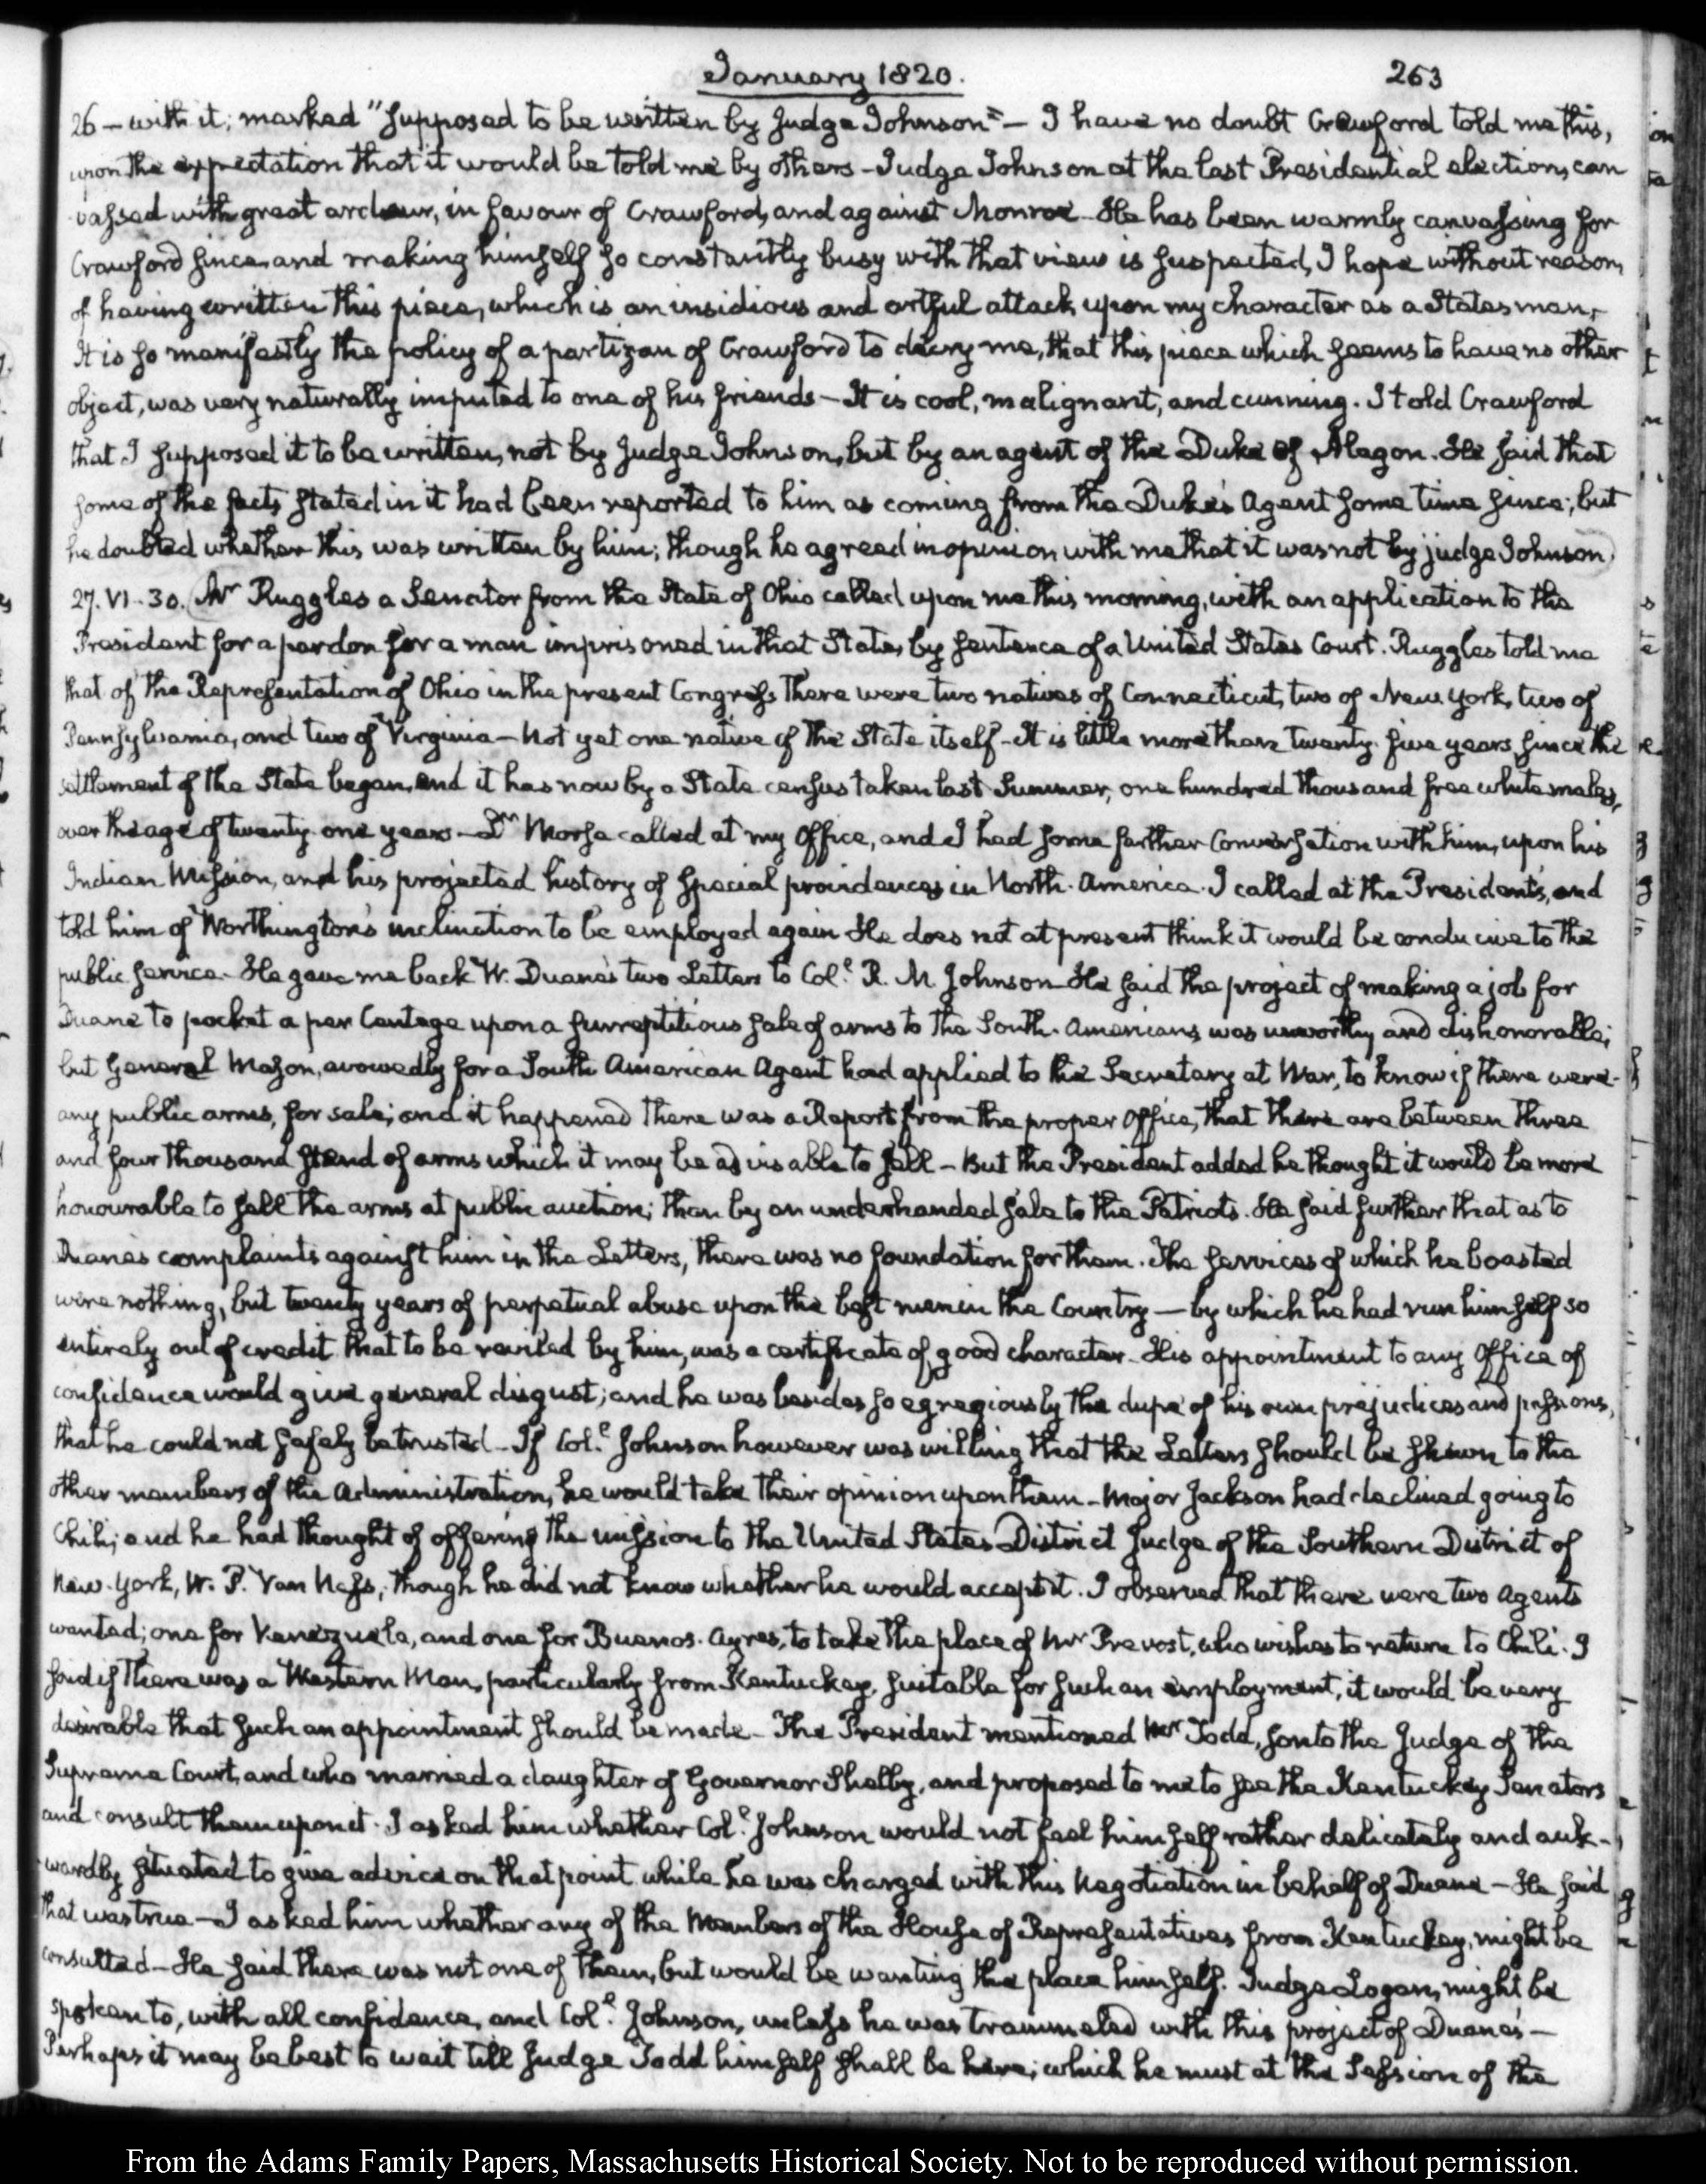 January 1820.
263
26 — with it; marked "supposed to be written by Judge Johnson" — I have no doubt Crawford told me this,
upon the expectation that it would be told me by others — Judge Johnson at the last Presidential election, can
vassed with great ardour, in favour of Crawford, and against Monroe. He has been warmly canvassing for
Crawford since, and making himself so constantly busy with that view is suspected, I hope without reason,
of having written this piece, which is an insidious and artful attack upon my character as a Statesman,
It is so manifestly the policy of a partizan of Crawford to decry me, that this piece which seems to have no other
object, was very naturally imputed to one of his friends — It is cool, malignant, and cunning. I told Crawford
that I supposed it to be written, not by Judge Johnson, but by an agent of the Duke of Alagon. He said that
some of the facts stated in it had been reported to him as coming from the Duke's Agent some time since; but
he doubted whether this was written by him; though he agreed in opinion with me that it was not by judge Johnson.
27. VI. 30. Mr Ruggles a Senator from the State of Ohio called upon me this morning, with an application to the
President for a pardon for a man imprisoned in that State, by sentence of a United States Court. Ruggles told me
that of the Representation of Ohio in the present Congress there were two natives of Connecticut, two of New York, two of
Pennsylvania, and two of Virginia — Not yet one native of the State itself — It is little more than twenty-five years since the
settlement of the State began, and it has now by a State census taken last Summer, one hundred thousand free white males,
over the age of twenty-one years — Dr Morse called at my Office, and I had some farther Conversation with him, upon his
Indian Mission, and his projected history of special providences in North-America. I called at the President's, and
told him of Worthington's inclination to be employed again. He does not at present think it would be conducive to the
public service. He gave me back W. Duane's two Letters to Col. R. M. Johnson. He said the project of making a job for
Duane to pocket a per Centage upon a surreptitious sale of arms to the South-Americans, was unworthy and dishonorable;
but General Mason, avowedly for a South American Agent had applied to the Secretary at War, to know if there were
any public arms, for sale; and it happened there was a Report from the proper Office, that there are between three
and four thousand stand of arms which it may be advisable to sell — But the President added he thought it would be more
honourable to sell the arms at public auction; than by an underhanded sale to the Patriots. He said further that as to
Duane's complaints against him in the Letters, there was no foundation for them. The services of which he boasted
were nothing, but twenty years of perpetual abuse upon the best men in the Country — by which he had run himself so
entirely out of credit that to be reviled by him, was a certificate of good character. His appointment to any Office of
confidence would give general disgust; and he was besides so egregiously the dupe of his own prejudices and passions,
that he could not safely be trusted — If Col. Johnson however was willing that the Letters should be shewn to the
other members of the Administration, he would take their opinion upon them — Major Jackson had declined going to
Chili; and he had thought of offering the mission to the United States District Judge of the Southern District of
New-York, W. P. Van Ness; though he did not know whether he would accept it. I observed that there were two Agents
wanted; one for Venezuela, and one for Buenos-Ayres, to take the place of Mr Prevost, who wishes to return to Chili. I
said if there was a Western Man, particularly from Kentuckey, suitable for such an employment, it would be very
desirable that such an appointment should be made — The President mentioned Mr Todd, son to the Judge of the
Supreme Court, and who married a daughter of Governor Shelby, and proposed to me to see the Kentuckey Senators
and consult them upon it. I asked him whether Col. Johnson would not feel himself rather delicately and auk-
wardly situated to give advice on that point while he was charged with this Negotiation in behalf of Duane — He said
that was true — I asked him whether any of the Members of the House of Representatives from Kentuckey, might be
consulted — He said there was not one of them, but would be wanting the place himself. Judge Logan, might be
spoken to, with all confidence, and Col. Johnson, unless he was trammeled with this project of Duane's —
Perhaps it may be best to wait till Judge Todd himself shall be here; which he must at the Session of the
From the Adams Family Papers, Massachusetts Historical Society. Not to be reproduced without permission.